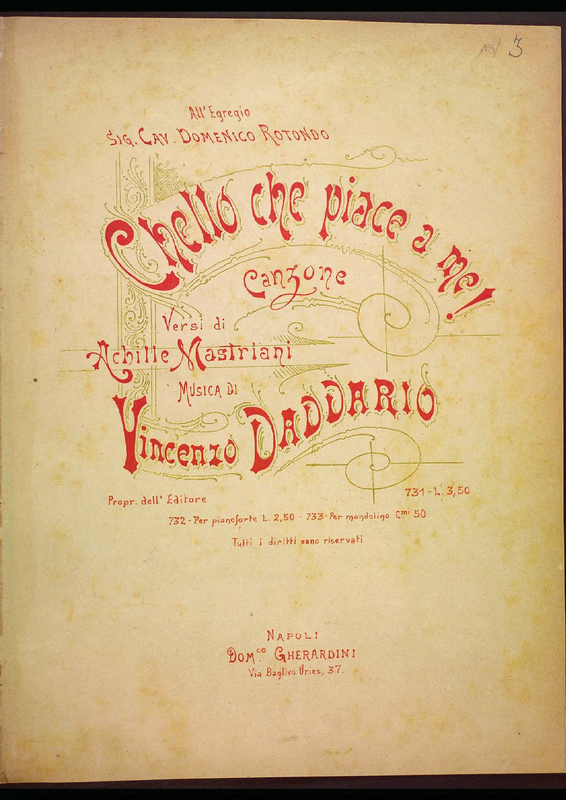 3
All' Egregio
Sig. Cav. Domenico Rotondo
Chello che piace a me!
Canzone
Versi di
Achille Mastriani
Musica di
Vincenzo Daddario
Propr. dell' Editore
731 - L. 3,50
732 - Per pianoforte L. 2,50 - 733 - Per mandolino Cmi 50
Tutti i diritti sono riservati
Napoli
Dom.co Gherardini
Via Baglivo Uries, 37.